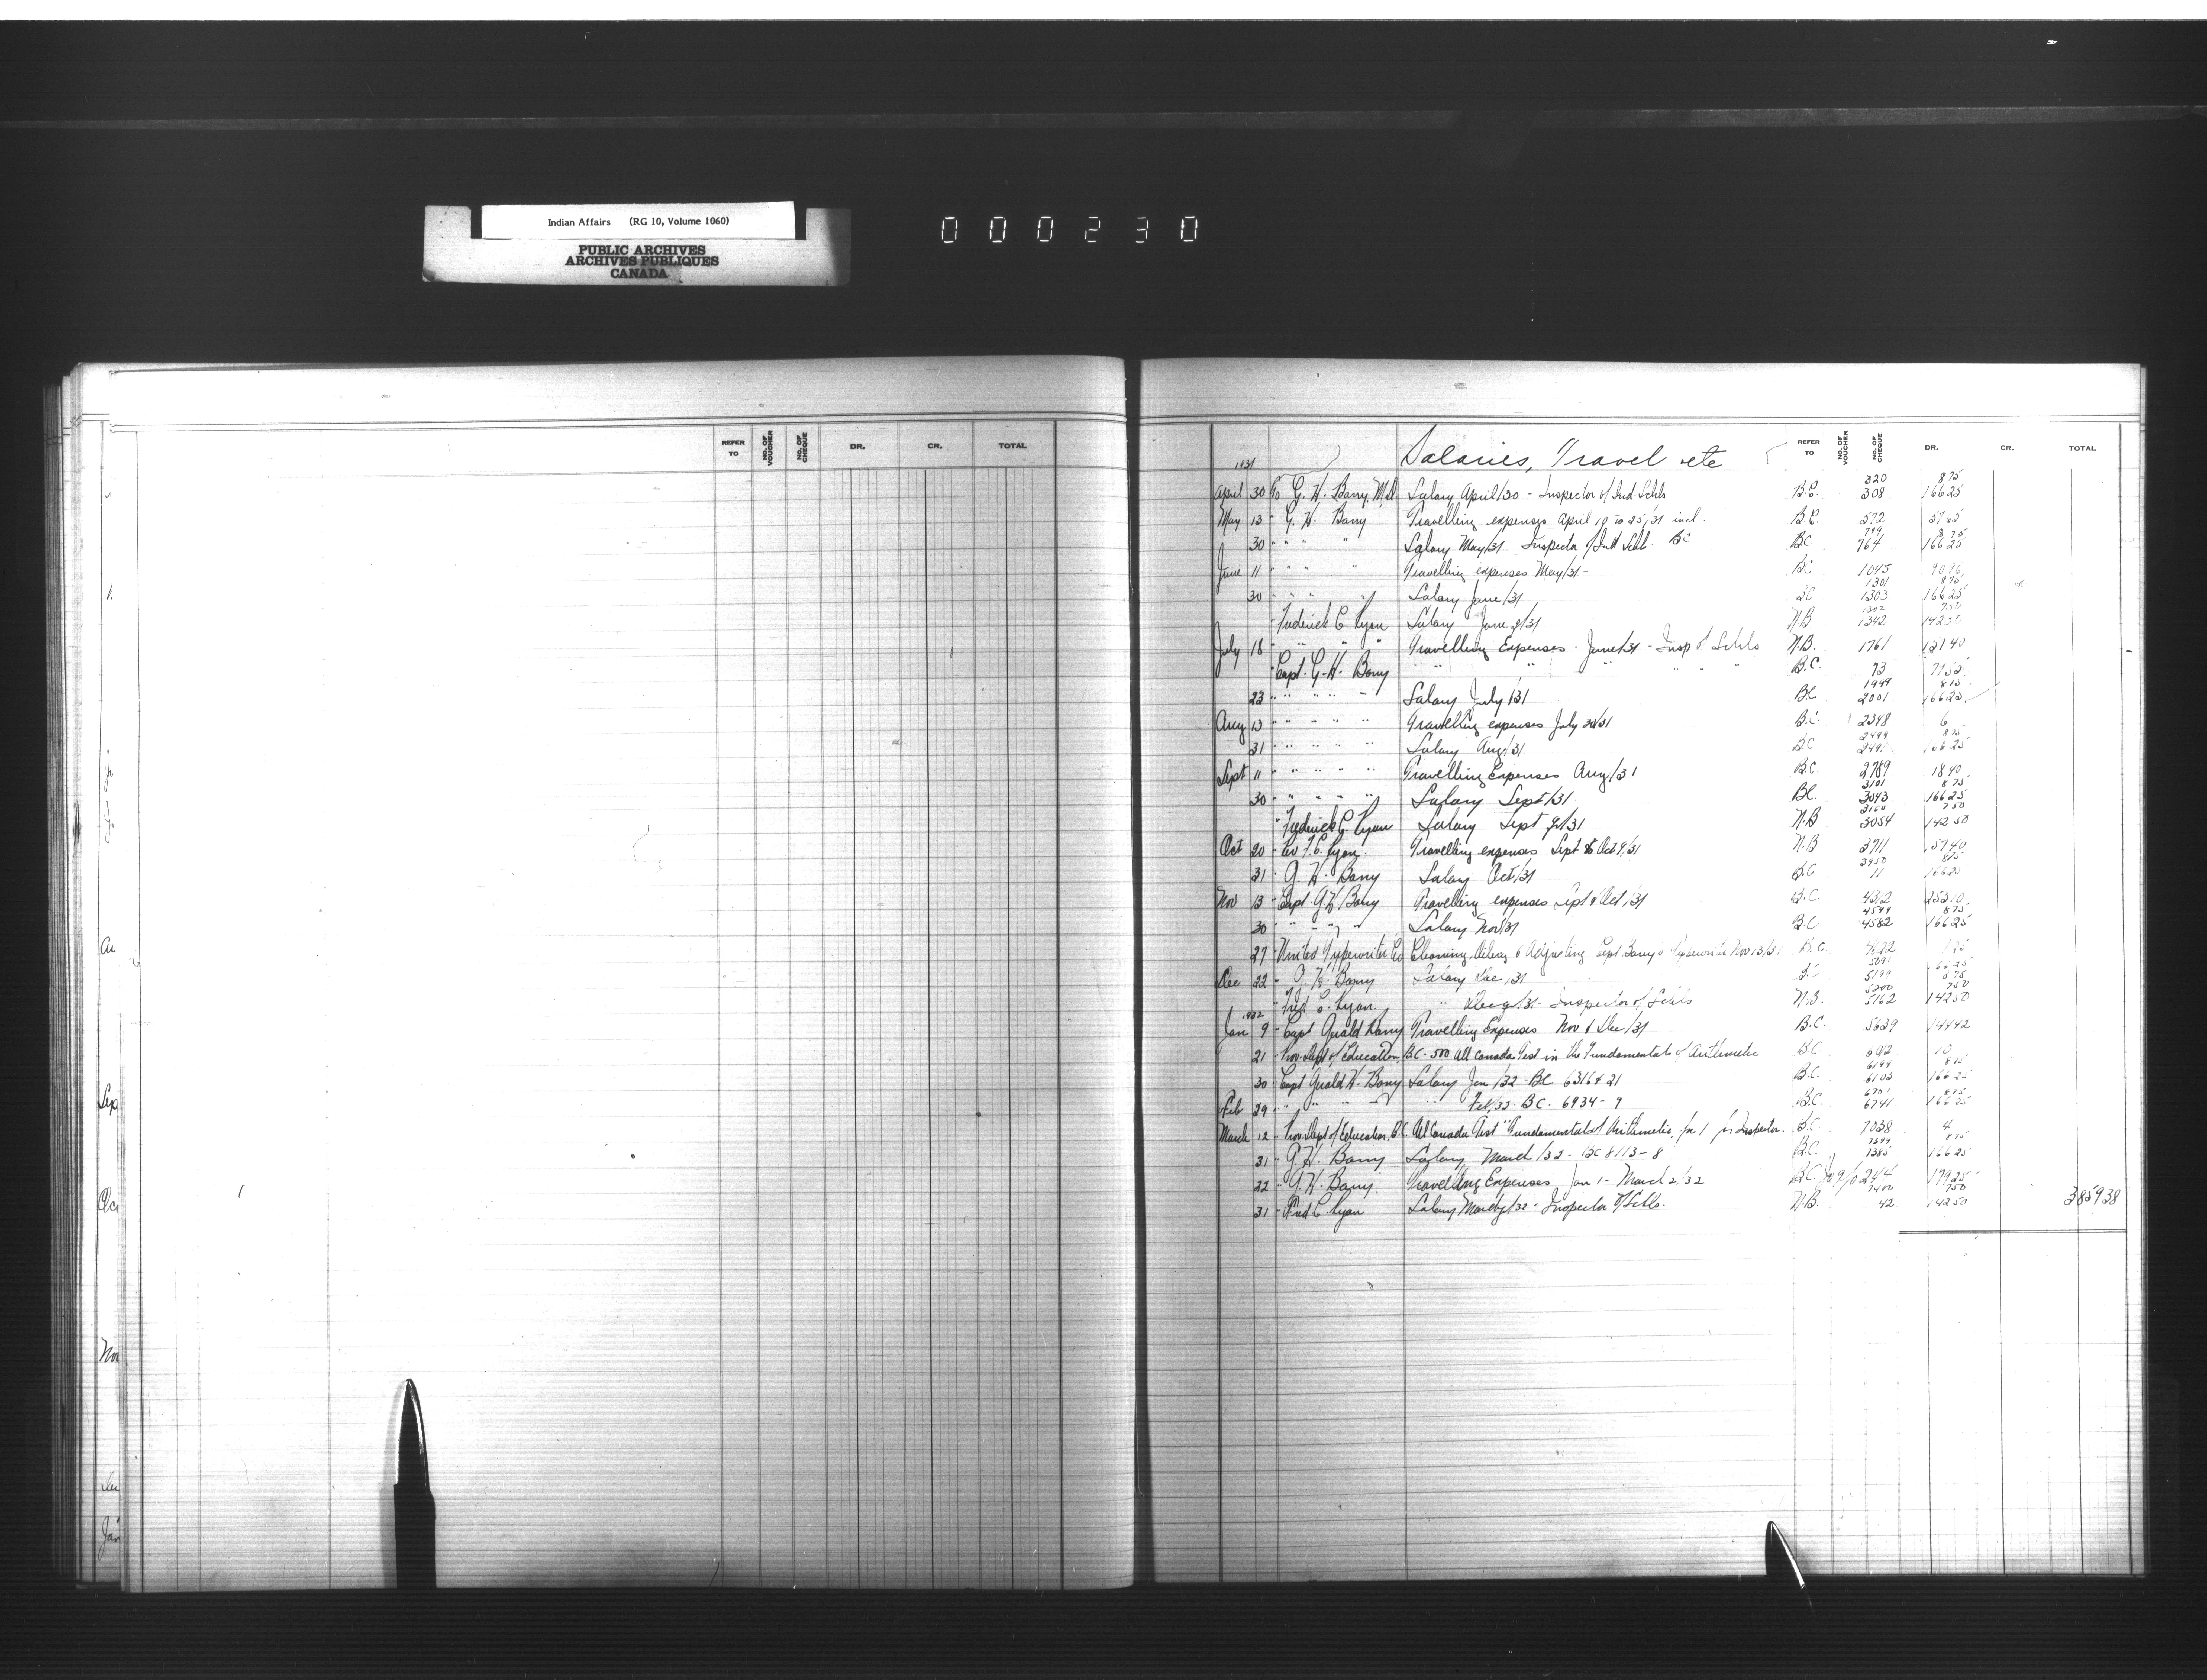 Indian Affairs (RG 10, Volume 1060)
PUBLIC ARCHIVES
ARCHIVES PUBLIQUES
CANADA
000230
REFER TO NO. OF VOUCHER NO. OF CHEQUE DR. CR. TOTAL
Salaries, Travel etc REFER TO NO. OF VOUCHER NO. OF CHEQUE DR. CR. TOTAL
1931
320 875
April 30 To G. H. Barry, Salary April/30 - Inspector of Ind. Schls B.C. 308 16625
May 13 " G. H. Barry Travelling expenses April 10 to 25/31 incl. B.C. 572 5765
799 875
30 " " " Salary May/31 Inspector of Ind Schls BC BC 764 16625
June 11 " " " Travelling expenses May/31 - BC 1045 9096
1301 875
30 " " " Salary June/31 B.C. 1303 16625
1302 750
" Frederick C Ryan Salary June q/31 N.B 1342 14250
July 18 " " " " Travelling Expenses - June/31 - Insp of Schls N.B. 1761 12140
" Capt. G. H. Barry " " " " " B.C. 73 7752
1999 875
23 " " " " Salary July/31 BC 2001 16625
Aug 13 " " " " Travelling expenses July 31 B.C. 2348 6
2499 875
31 " " " " Salary Aug/31 B.C 2491 16625
Sept 11 " " " " Travelling Expenses Aug/31 B.C. 2789 1840
3101 875
30 " " " " Salary Sept/31 BC. 3043 16625
3160 750
" Frederick C. Ryan Salary Sept q/31 N.B 3054 14250
Oct 20 " Rev F. C. Ryan. Travelling expenses Sept & Oct 9/31 N.B 3711 5740
3950 875
31 " G. H. Barry Salary Oct/31 B.C 11 16625
Nov 13 " Capt. G H Barry Travelling expenses Sept & Oct/31 B.C 4312 25310
4599 875
30 " " " " Salary Nov/31 B.C 4582 16625
27 " United Typewriter Co Cleaning, Oiling & Adjusting Capt Barry's Typewriter Nov 13/31 B.C. 4622
5091 16625
Dec 22 " G. H. Barry Salary Dec/31 BC 5199 875
5200 750
" Fred C. Ryan. " Dec q/31 - Inspector of Schls N.B. 5162 14250
1932
Jan 9 " Capt Gerald Barry Travelling Expenses Nov & Dec/31 B.C. 5639 14442
21 " Prov. Dept of Education, B.C. - 500 All Canada Test in the Fundamentals of Arithmetic B.C. 10
6199 875
30 " Capt Gerald H. Barry Salary Jan/32 - BC 6316 & 21 B.C. 6103 16625
6701 875
Feb 29 " " " " " Feb/32 - BC - 6934-9 B.C. 6741 16625
March 12 " Prov. Dept of Education, B.C. All Canada Test "Fundamentals of Arithmetic, for Inspector. B.C. 7038 4
7399 875
31 " G. H. Barry Salary March/32 - BC 8113-8 B.C. 7385 16625
22 " G. H. Barry Travelling Expenses Jan 1 - March 2/32 BC 17925
7400 750
31 " Fred C Ryan Salary March q/32 - Inspector of Schls. N.B. 42 14250 385938